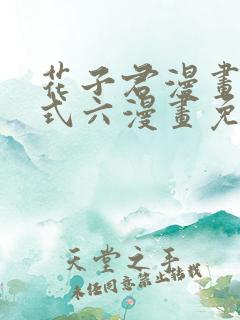 花子君漫畫
式六漫畫免
天堂之手
未经同意禁止转载